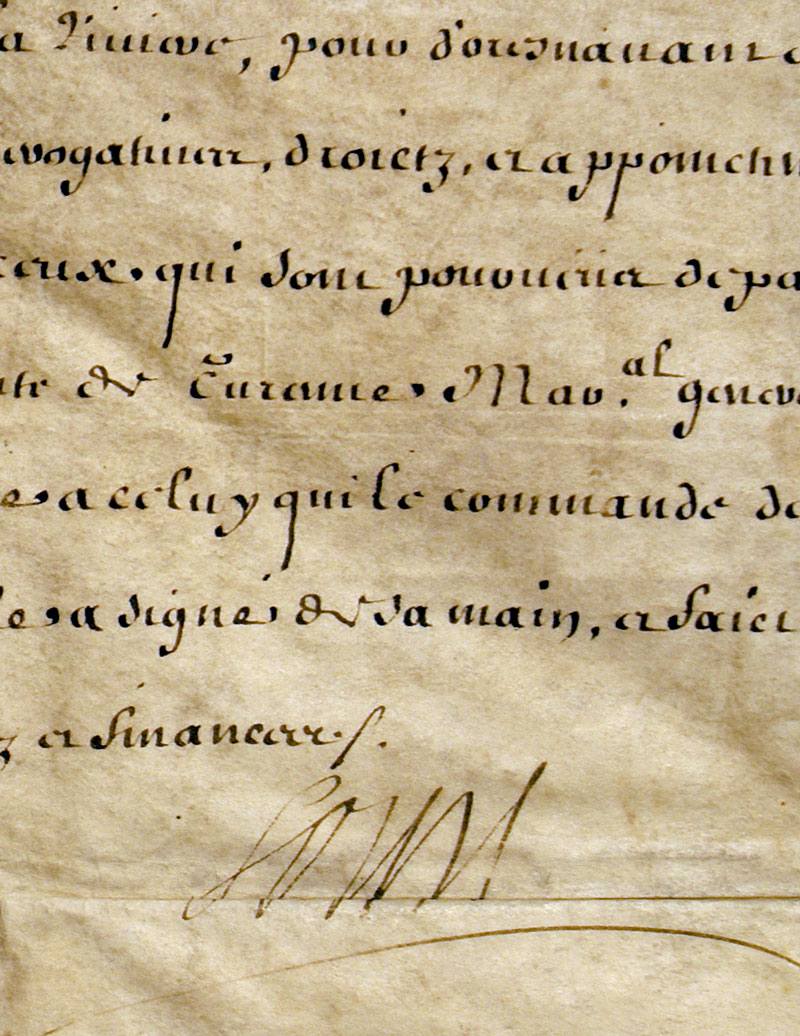 la Riviere, pour d'oresnavant e
erogatives, droictz, et appoinctem
ceux qui sont pourveus de pa
nte de Turenne, Mar.al genera
e, a celuy qui le commande de
le, a signé de sa main, et faict
z et financess.
Louis